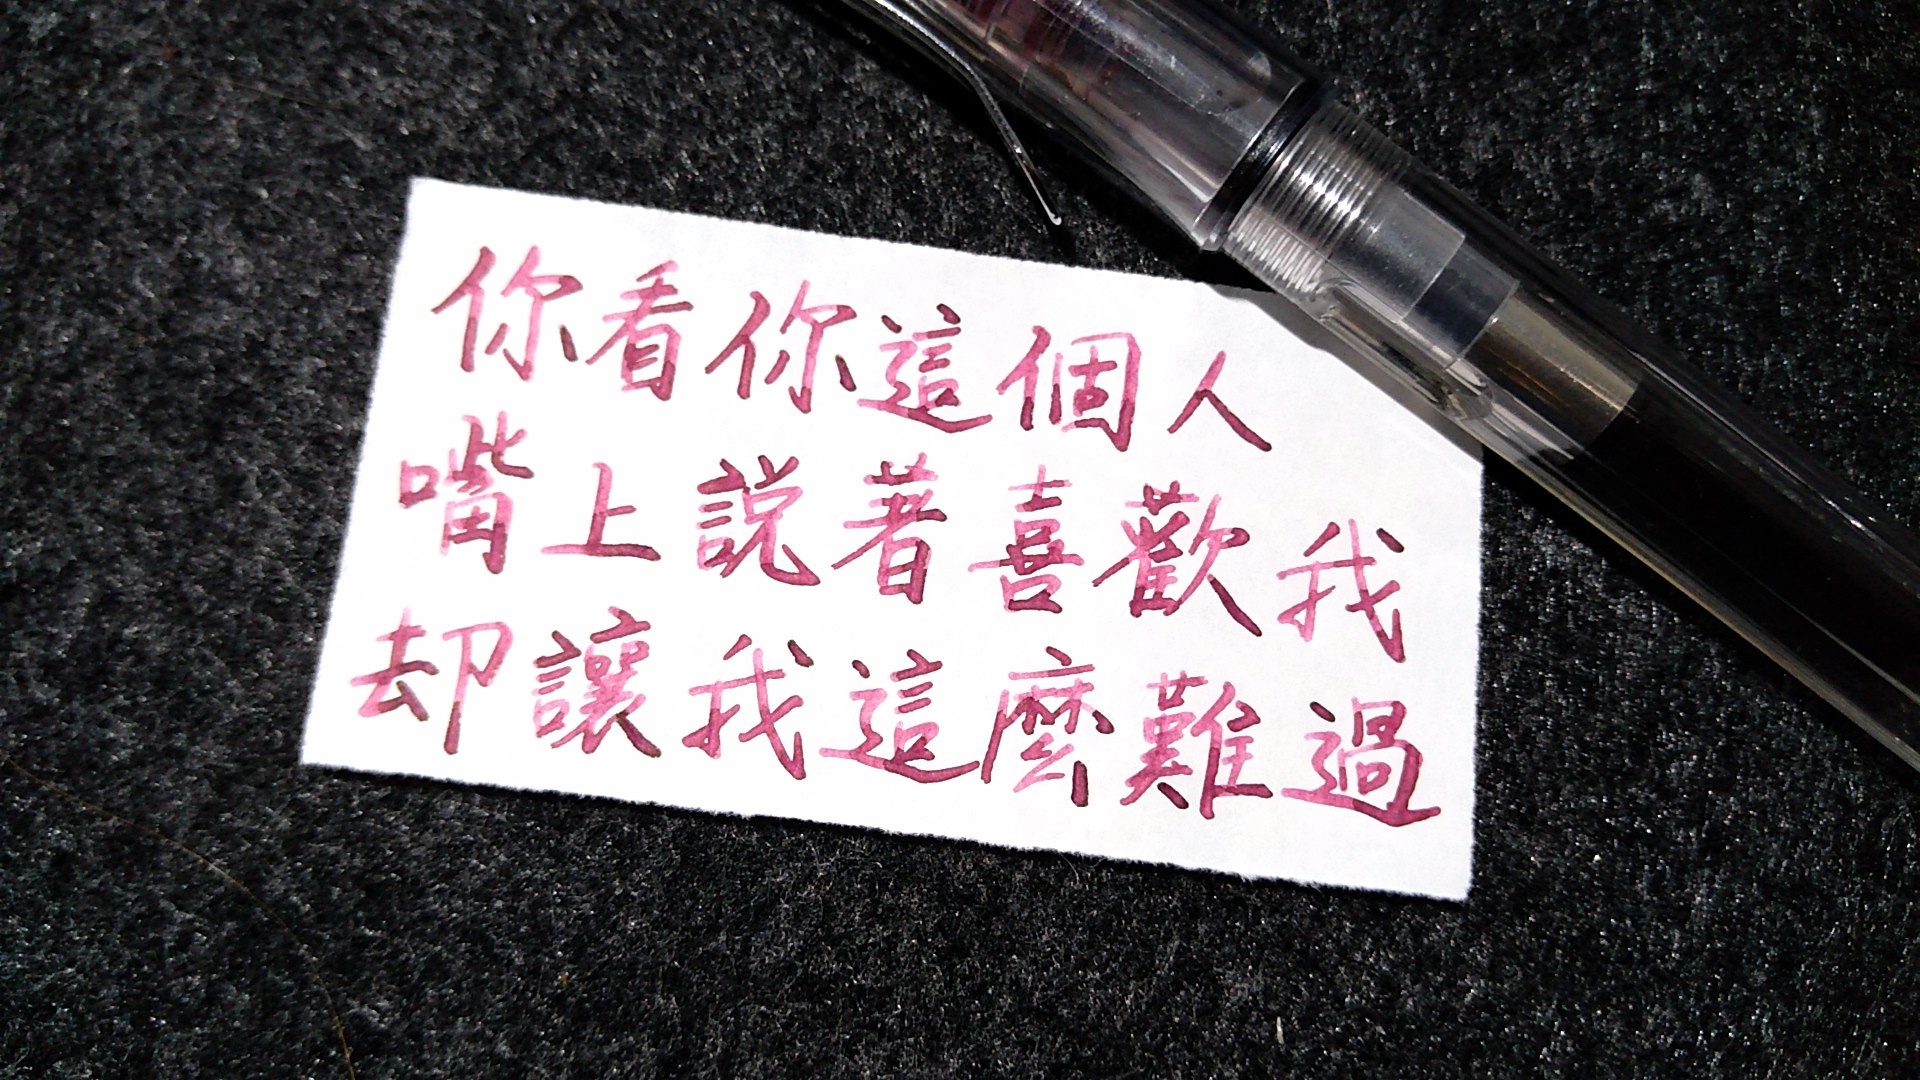 你看你這個人
嘴上説著喜歡我
却讓我這麼難過